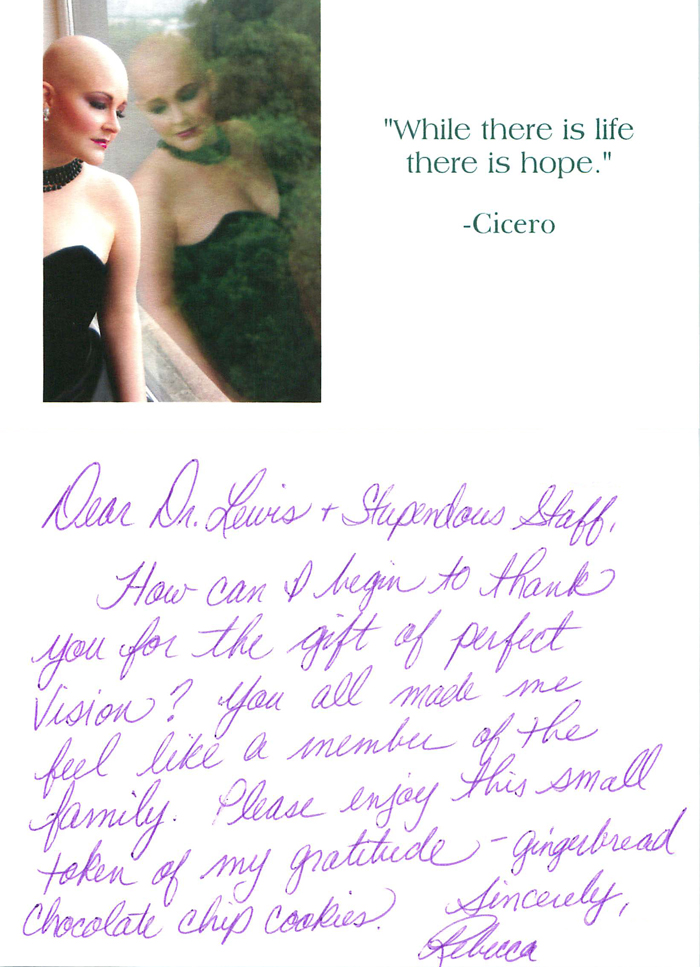 "While there is life
there is hope."
-Cicero
Dear Dr. Lewis + Stupendous Staff,
How can I begin to thank
you for the gift of perfect
Vision? You all made me
feel like a member of the
family. Please enjoy this small
token of my gratitude - gingerbread
chocolate chip cookies.
Sincerely,
Rebecca